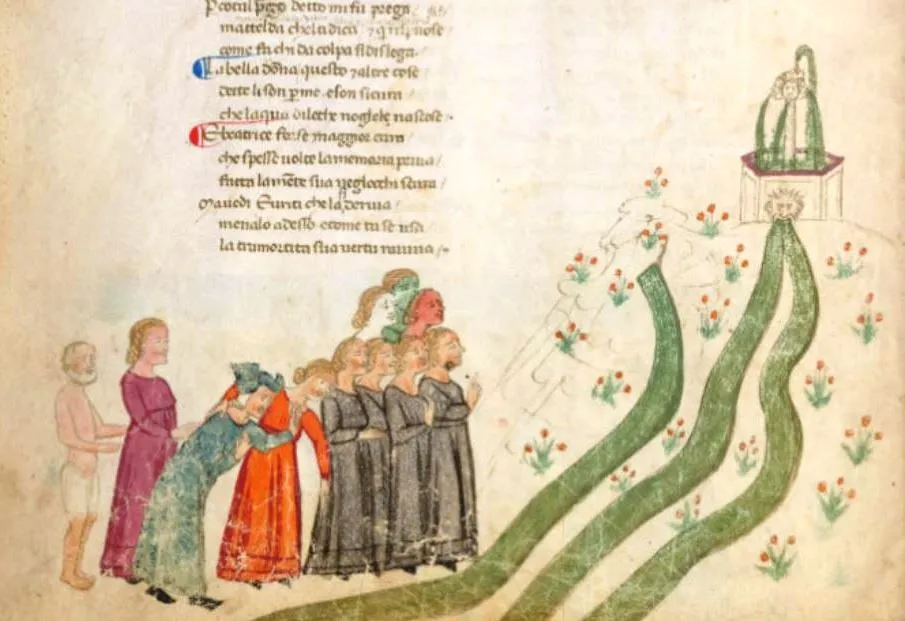 Pcotal pgo detto mi fu prega
mattelda chel ti dica
come fa chi da colpa si dislega
La bella dona questo 7 altre cose
dette li son p me e son sicura
che laqua di lethe no gliele nascose
E beatrice forse maggior cura
che spesse uolte la memoria priua
fatta la mete sua negliocchi scura
Ma uedi Eunoe che la deriua
menalo adesso e come tu se usa
la tramortita sua uertu rauiua